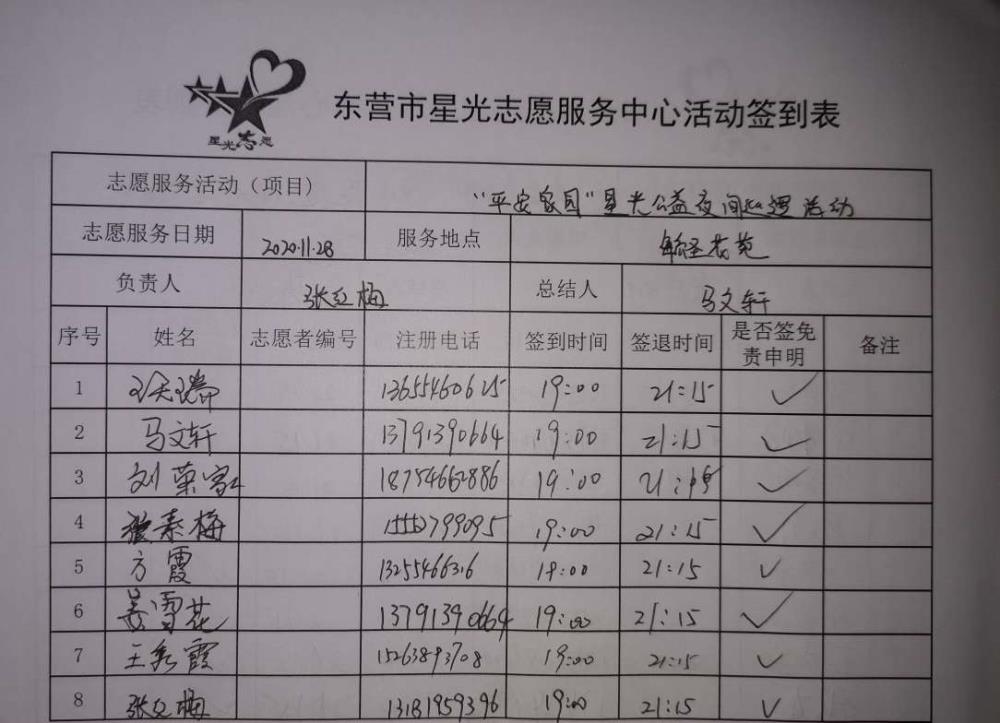 星光志愿
东营市星光志愿服务中心活动签到表
志愿服务活动（项目） “平安家园”星光公益夜间巡逻活动
志愿服务日期 2020.11.28 服务地点 花苑
负责人 张红梅 总结人 马文轩
序号 姓名 志愿者编号 注册电话 签到时间 签退时间 是否签免责申明 备注
1 13655460625 19:00 21:15 ✓
2 马文轩 13791390664 19:00 21:15 ✓
3 刘荣家 18754662886 19:00 21:15 ✓
4 素梅 15552799095 19:00 21:15 ✓
5 方霞 13255466316 19:00 21:15 ✓
6 姜雪花 13791390664 19:00 21:15 ✓
7 王秀霞 15263893708 19:00 21:15 ✓
8 张红梅 13181959396 19:00 21:15 ✓